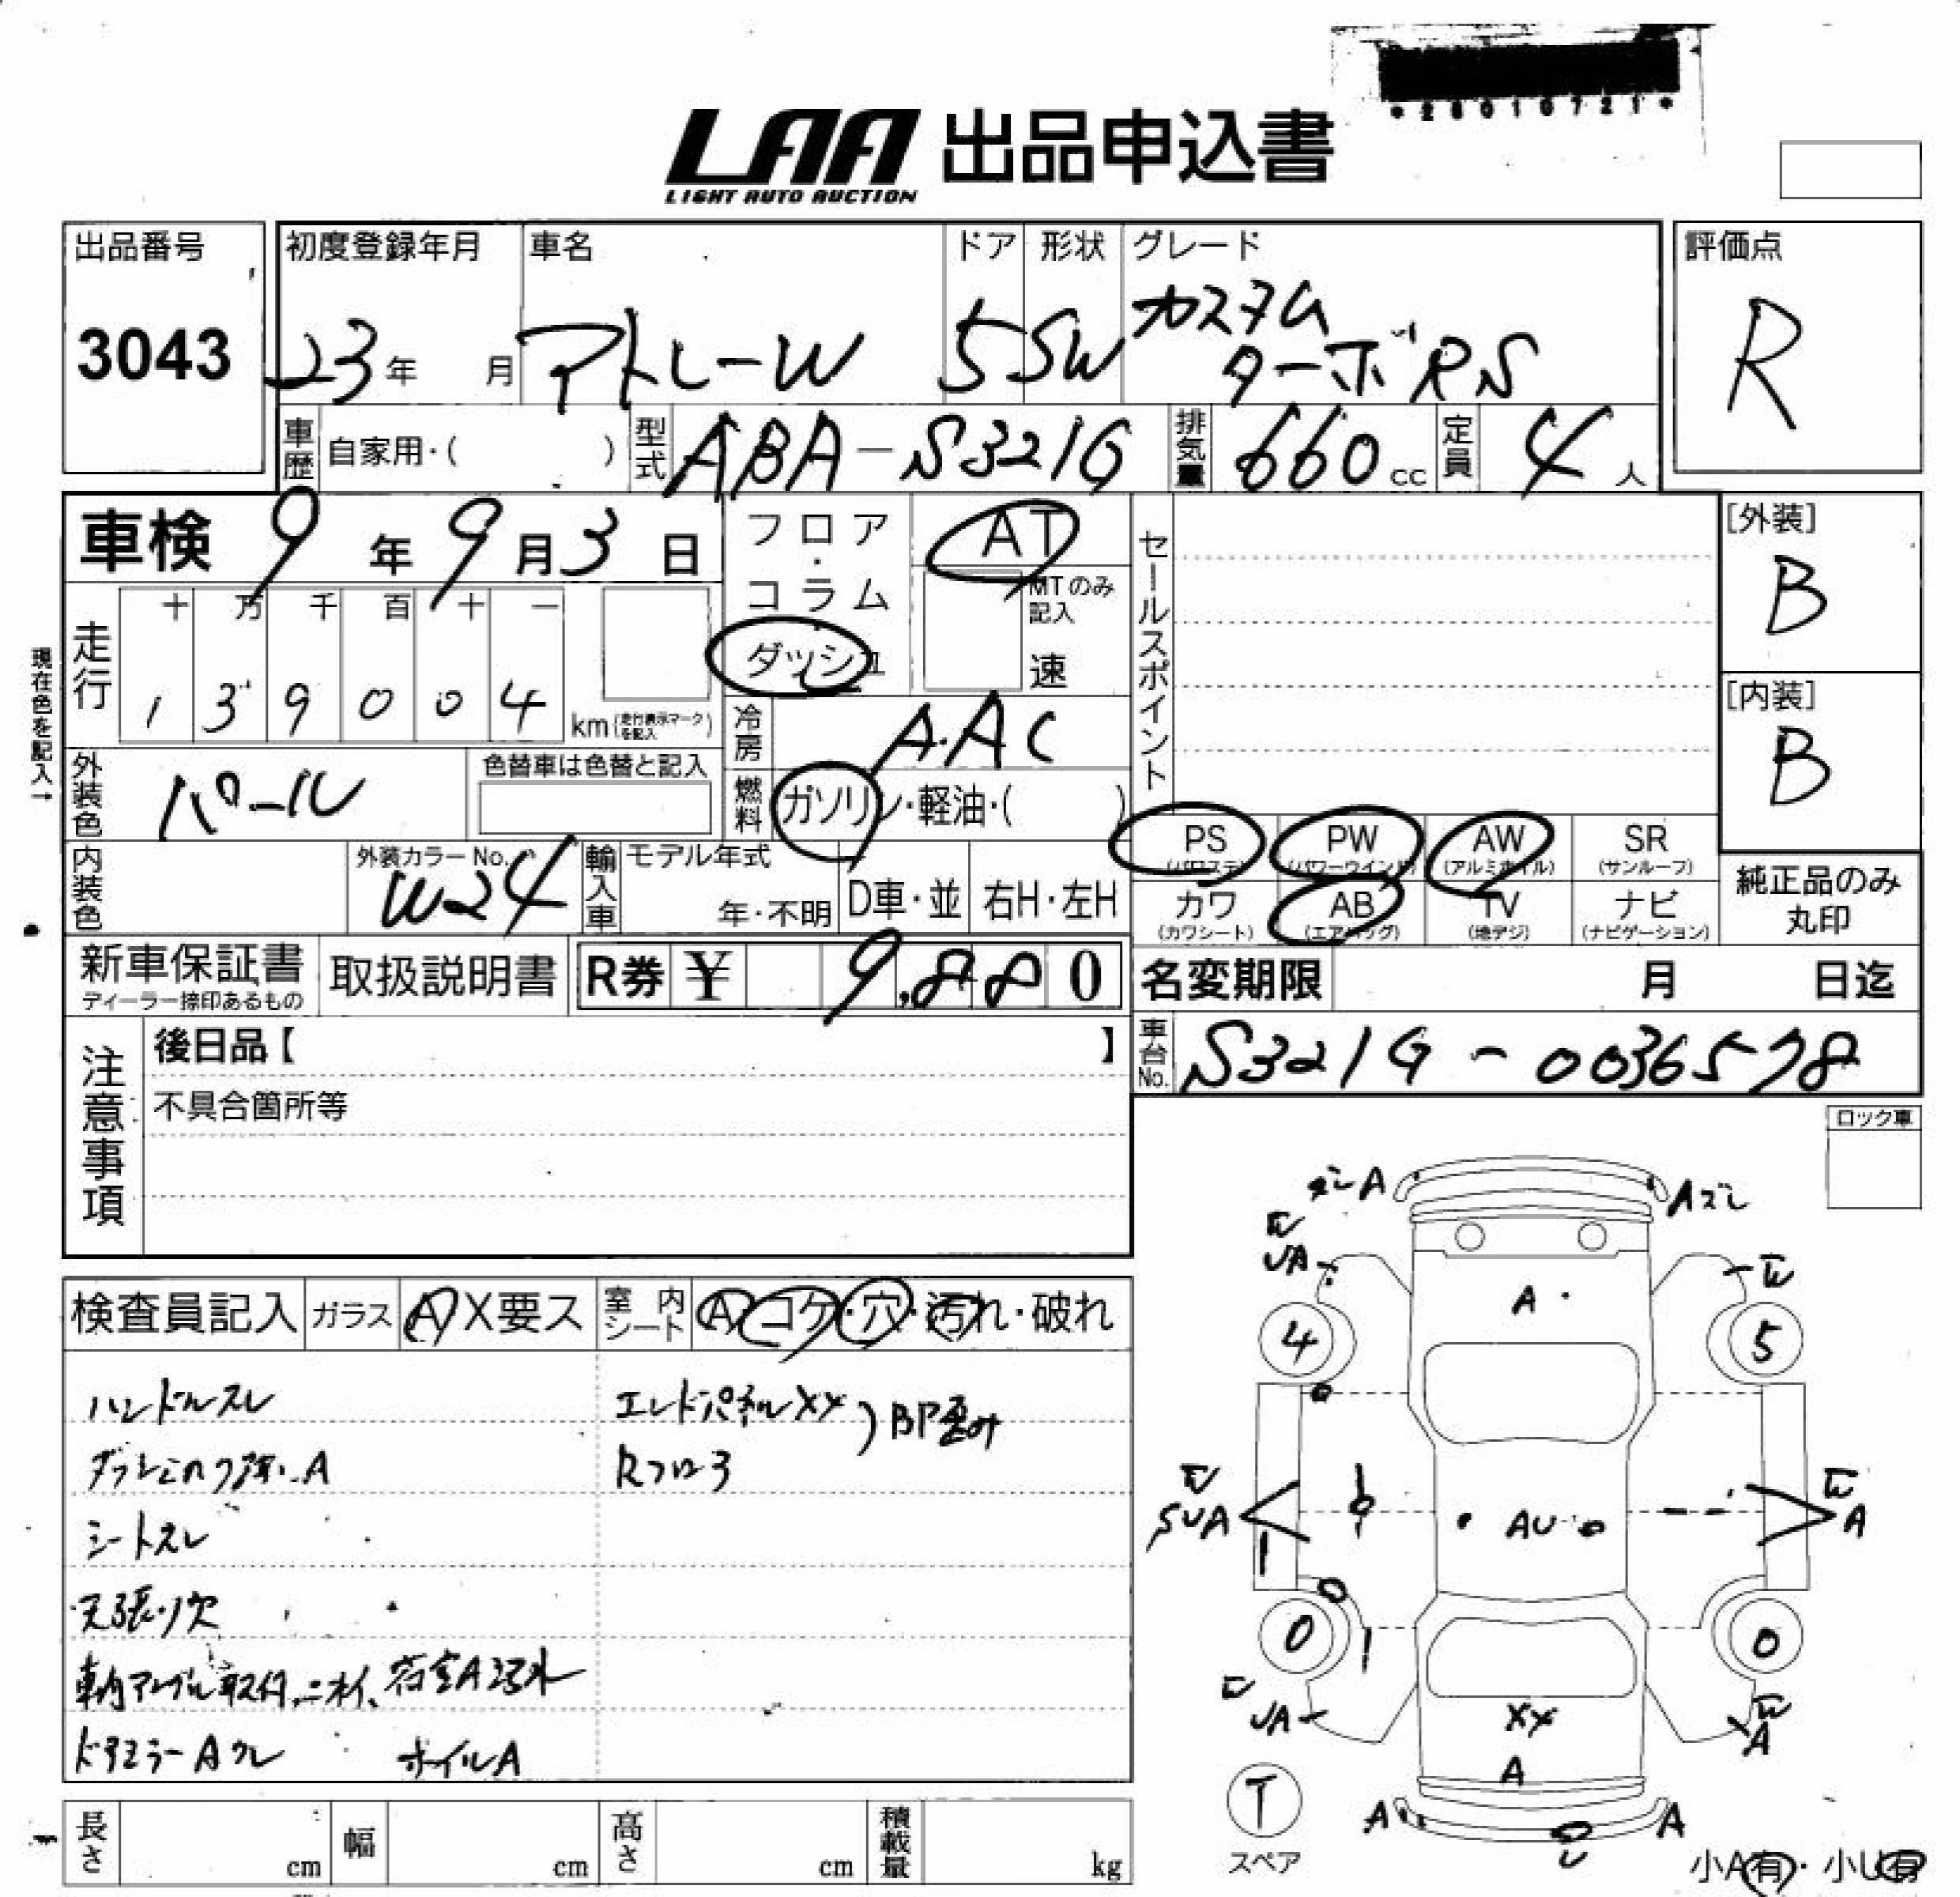 *28010721*
LAA 出品申込書
LIGHT AUTO AUCTION
出品番号 初度登録年月 車名 ドア 形状 グレード 評価点
3043 23年 月 アトレーW 5 SW カスタム R
ターボRS
車歴 自家用・( ) 型式 ABA-S321G 排気量 660cc 定員 4人
車検 9年9月3日 フロア・コラム・ダッシュ AT セールスポイント [外装]
B
MTのみ記入 速
現在色を記入→
走行 十 万 千 百 十 一
1 3 9 0 0 4 km(走行表示マークを記入)
[内装]
B
冷房 A.AC
外装色 パール 色替車は色替と記入 燃料 ガソリン・軽油・( )
PS (パワステ) PW (パワーウインド) AW (アルミホイル) SR (サンルーフ)
内装色 外装カラーNo. W24 輸入車 モデル年式 年・不明 D車・並 右H・左H
カワ (カワシート) AB (エアバッグ) TV (地デジ) ナビ (ナビゲーション)
純正品のみ丸印
新車保証書 ディーラー捺印あるもの 取扱説明書 R券 ¥ 9,880 名変期限 月 日迄
注意事項 後日品【 】 車台No. S321G-0036578
不具合箇所等
ロック車
検査員記入 ガラス A X要ス 室内シート A・コゲ・穴・汚れ・破れ
ハンドルスレ エンドパネルXX )BP歪み
A Rフロア
シートスレ
天張り穴
車内アングル取付、ニオイ、荷室A汚れ
ドアミラーA ホイルA
A Aズレ
UA
A
4 5
A
AU
0 0
UA XX A
A
T A A
スペア
小A有・小U有
長さ cm 幅 cm 高さ cm 積載量 kg